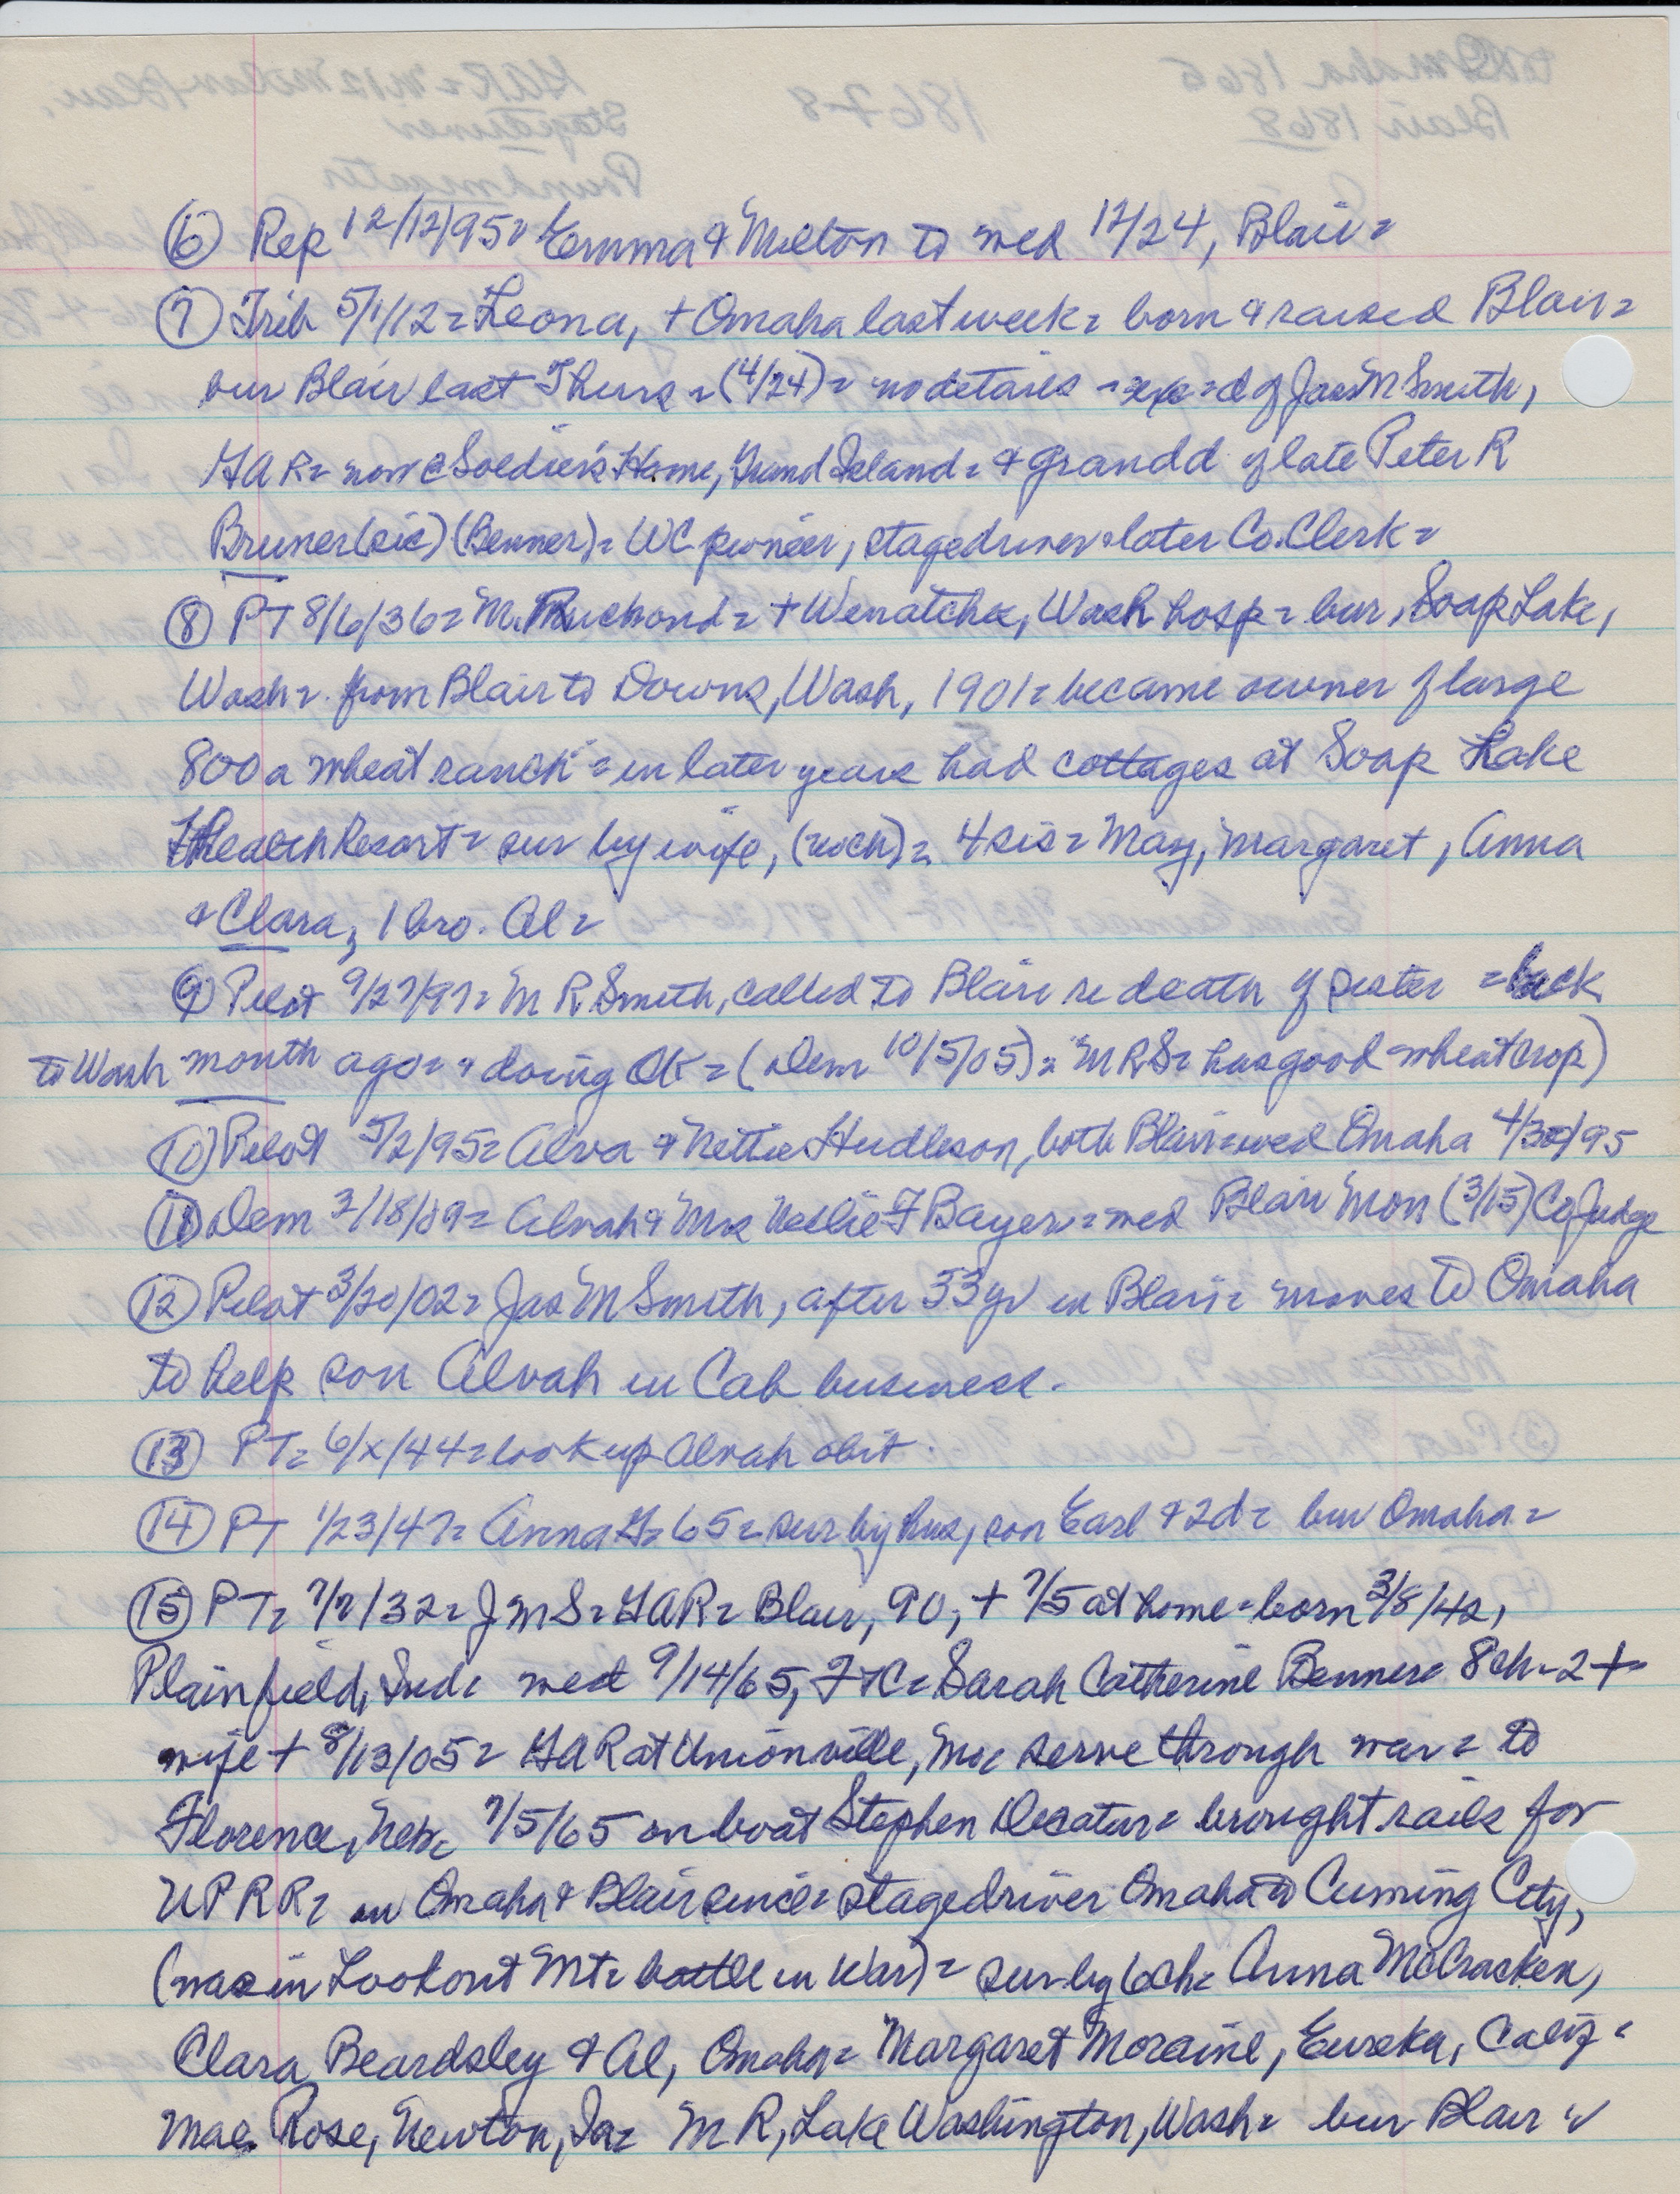 ⑥ Rep 12/12/95= Emma & Milton to wed 12/24, Blair=
⑦ Trib 5/1/12= Leona, + Omaha last week= born & raised Blair=
bur Blair last Thurs = (4/24)= no details - = d of Jas M Smith,
GAR= now @ Soldier's Home, Grand Island= & grandd of late Peter R
Bruner (sic) (Benner)= WC pioneer, stagedriver & later Co. Clerk=
⑧ PT 8/6/36= M. Richmond= + Wenatchee, Wash hosp= bur, Soap Lake,
Wash= from Blair to Downs, Wash, 1901= became owner of large
800 a wheat ranch= in later years had cottages at Soap Lake
Health Resort= sur by wife, (no ch)= 4 sis= May, Margaret, Anna
& Clara, 1 bro. Al=
⑨ Pilot 9/27/97= M R Smith, called to Blair re death of sister = back
to Wash month ago= & doing OK= (Dem 10/5/05)= MRS= has good wheat crop)
⑩ Pilot 5/2/95= Alva & Nettie Hudleson, both Blair= wed Omaha 4/30/95
⑪ Dem 3/18/09= Alvah & Mrs Nellie F Bayer= wed Blair Mon (3/15) Co Judge
⑫ Pilot 3/20/02= Jas M Smith, after 33 yr in Blair= moves to Omaha
to help son Alvah in Cab business.
⑬ PT= 6/x/44= look up Alvah obit.
⑭ PT 1/23/47= Anna G= 65= sur by hus, son Earl & 2d= bur Omaha=
⑮ PT= 7/7/32= J M S= GAR= Blair, 90, + 7/5 at home= born 3/8/42,
Plainfield, Ind= wed 9/14/65, Ft C= Sarah Catherine Benner= 8 ch - 2 +=
wife + 8/13/05= GAR at Unionville, Mo= serve through war= to
Florence, Neb= 7/5/65 on boat Stephen Decatur= brought rails for
UPRR= in Omaha & Blair since= stagedriver Omaha to Cuming City,
(was in Lookout Mt= battle in War)= sur by 6 ch= Anna McCracken,
Clara Beardsley & Al, Omaha= Margaret Moraine, Eureka, Calif=
Mae Rose, Newton, Ia= M R, Lake Washington, Wash= bur Blair